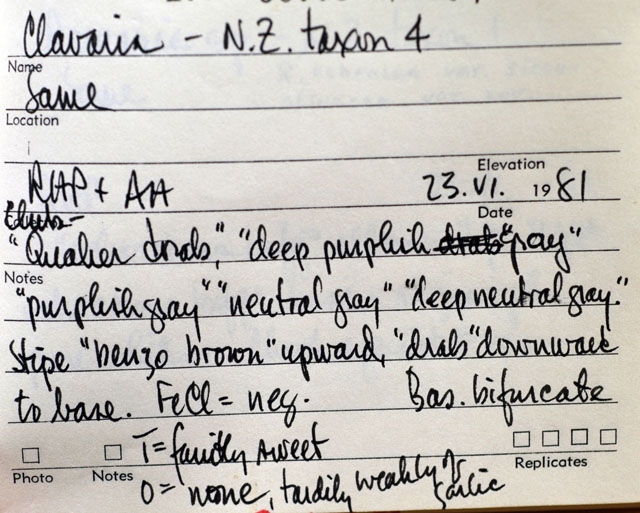 Clavaria - N.Z. taxon 4
Name
Same
Location
Elevation
RHP + AA 23.VI. 1981
Date
Clubs-
"Quaker drab," "deep purplish gray"
Notes
"purplish gray" "neutral gray" "deep neutral gray."
Stipe "benzo brown" upward, "drab" downward
to base. FeCl = neg. Bas. bifurcate
T = faintly sweet
Photo Notes Replicates
O = none, tardily weakly of
garlic